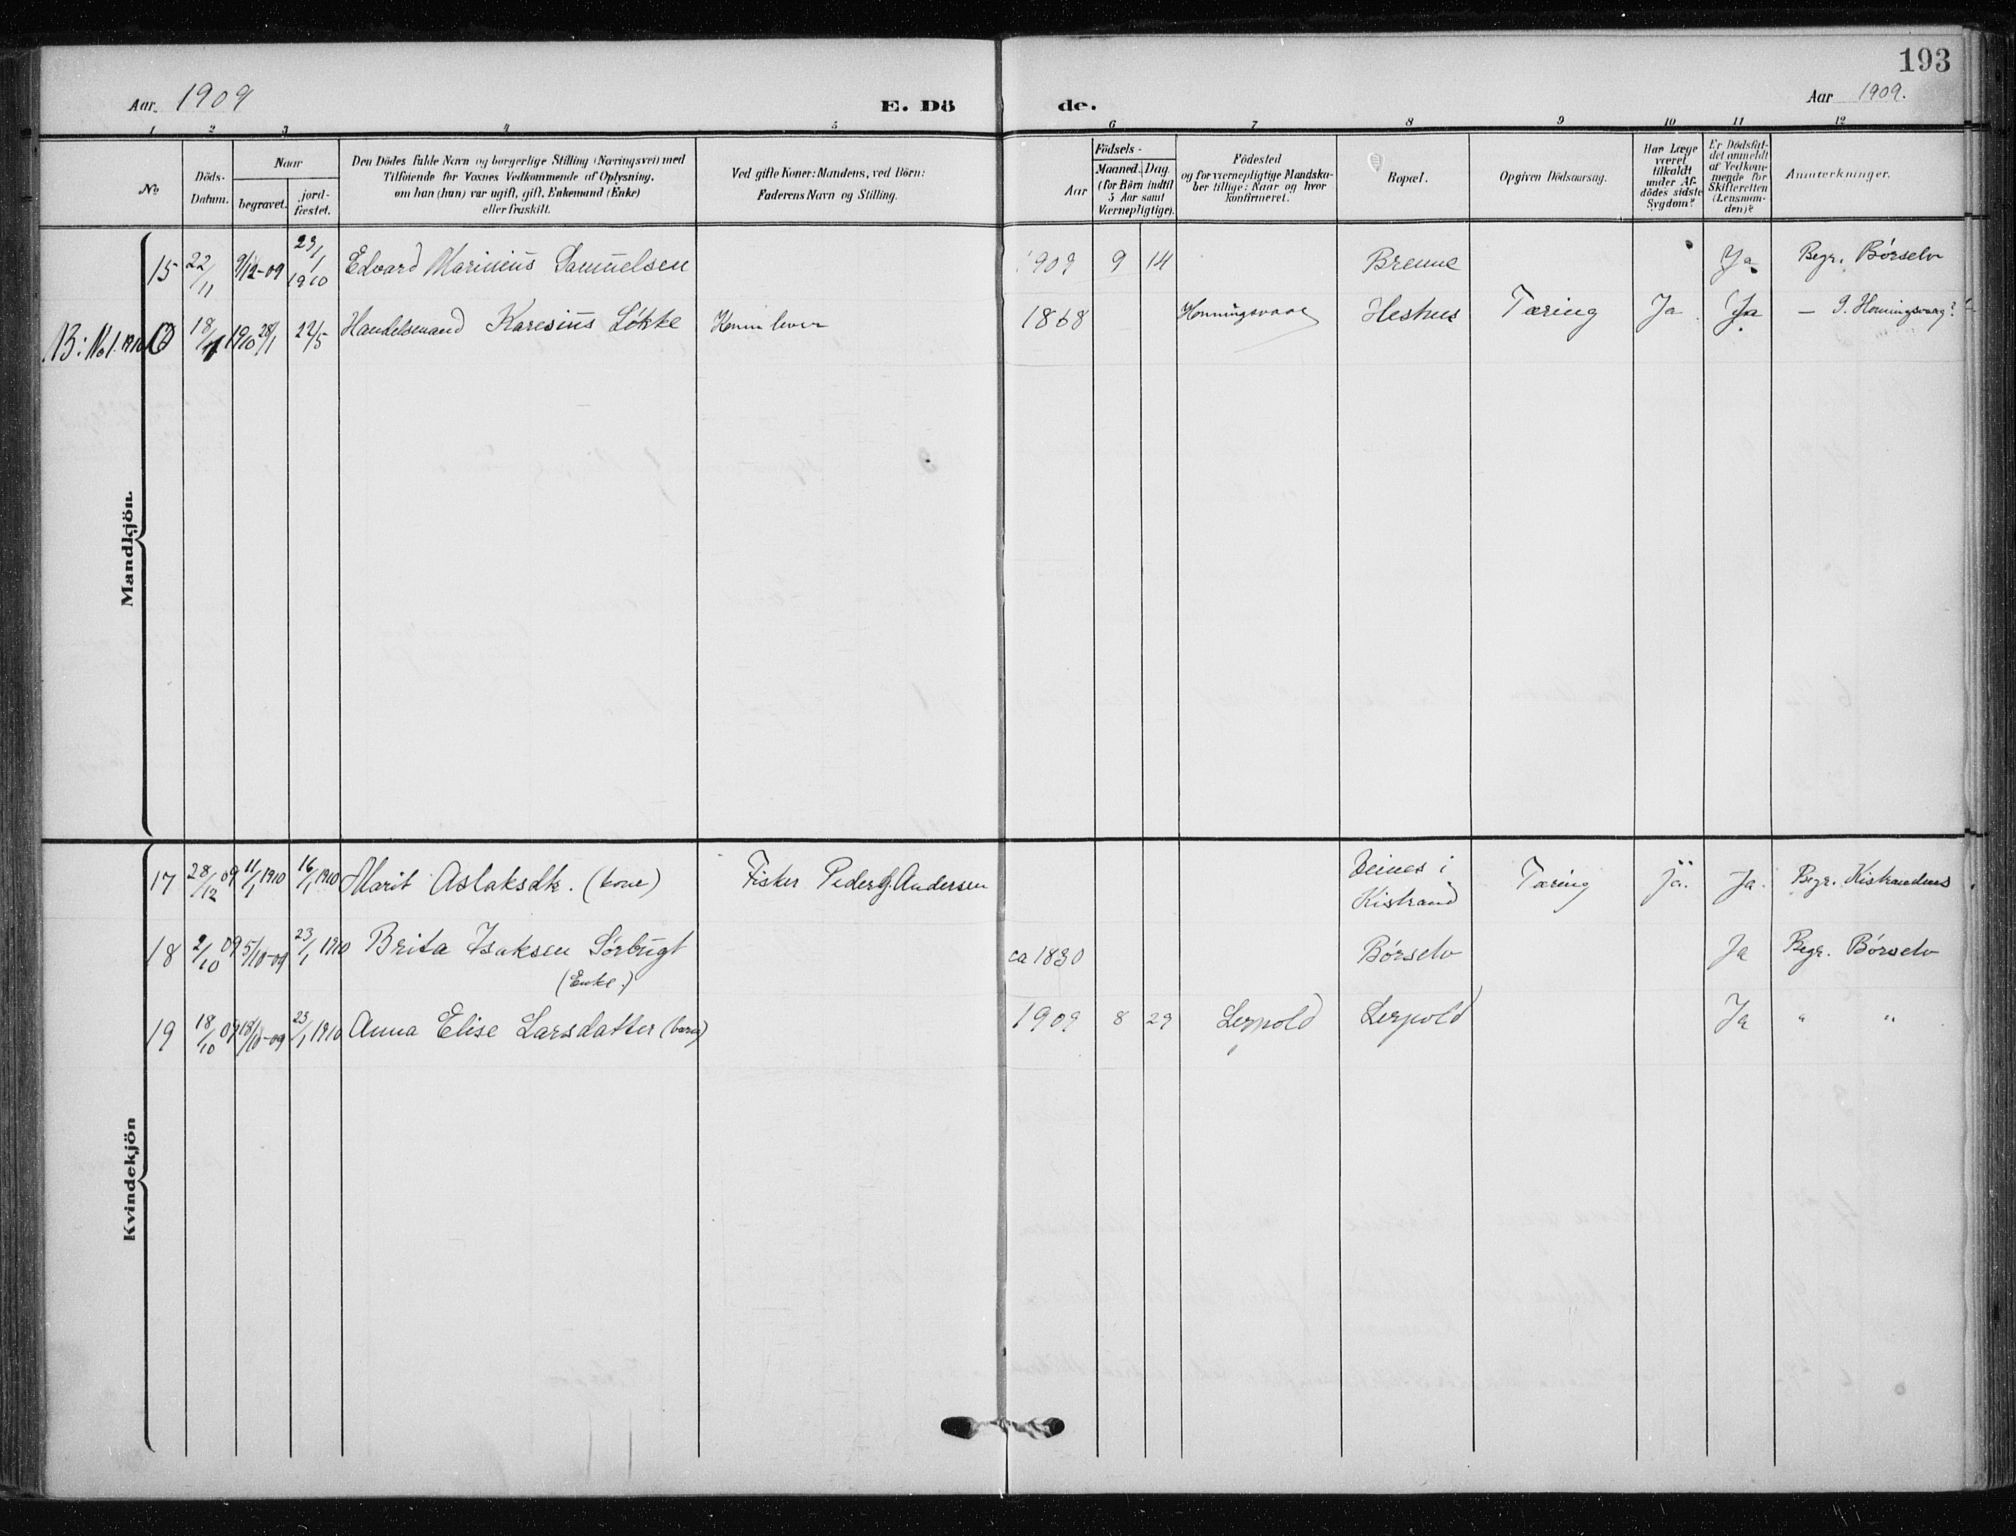 193
Aar. 1909
E. Dö de.
Aar 1909.
1 2 3 4 5 6 7 8 9 10 11 12
No
Döds-Datum.
Naar
begravet.
jord-fæstet.
Den Dödes fulde Navn og borgerlige Stilling (Næringsvei) med
Tilföiende for Voxnes Vedkommende af Oplysning,
om han (hun) var ugift, gift, Enkemand (Enke)
eller fraskilt.
Ved gifte Koner: Mandens, ved Börn:
Faderens Navn og Stilling.
Födsels-
Aar
Maaned. Dag.
(for Börn indtil
5 Aar samt
Værnepligtige).
Födested
og for værnepligtige Mandska-
ber tillige: Naar og hvor
konfirmeret.
Bopæl.
Opgiven Dödsaarsag.
Har Læge
været
tilkaldt
under Af-
dödes sidste
Sygdom?
Er Dödsfal-
det anmeldt
af Vedkom-
mende for
Skifteretten
(Lensman-
den)?
Anmærkninger.
Mandkjön.
15 22/11 9/12-09 23/1 1910 Edvard Marinius Samuelsen 1909 9 14 Brenne Ja Begr. Börselv
B: No 1. 1910 18/11 1910 28/1 22/5 Handelsmand Karesius Løkke 1868 Honningsvaag Heshus Tæring Ja Ja — I. Honningsvaag?
Kvindekjön
17 28/12 09 11/1 1910 16/1 1910 Marit Aslaksdtr. (kone) Fisker Peder G. Andersen Veines i Kistrand Tæring ja. Ja. Begr. Kistrandnes
18 2/10 09 5/10-09 23/1 1910 Brita Isaksen Sørbugt (Enke.) ca 1830 Børselv Ja Begr. Børselv
19 18/10 09 18/10-09 23/1 1910 Anna Elise Larsdatter (barn) 1909 8 29 Lerpold Lerpold Ja " "